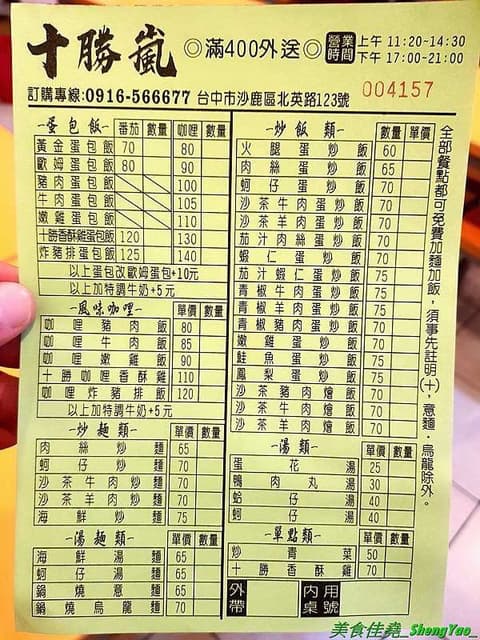 十勝嵐
◎滿400外送◎
營業時間 上午 11:20-14:30
下午 17:00-21:00
訂購專線:0916-566677 台中市沙鹿區北英路123號
004157
-蛋包飯- 番茄 數量 咖哩 數量
黃金蛋包飯 70 80
歐姆蛋包飯 80 90
豬肉蛋包飯 100
牛肉蛋包飯 105
嫩雞蛋包飯 110
十勝香酥雞蛋包飯 120 130
炸豬排蛋包飯 125 140
以上蛋包改歐姆蛋包+10元
以上加特調牛奶+5元
-風味咖哩- 單價 數量
咖哩豬肉飯 80
咖哩牛肉飯 85
咖哩嫩雞飯 90
十勝咖哩香酥雞 110
咖哩炸豬排飯 120
以上加特調牛奶+5元
-炒麵類- 單價 數量
肉絲炒麵 65
蚵仔炒麵 70
沙茶牛肉炒麵 70
沙茶羊肉炒麵 70
海鮮炒麵 75
-湯麵類- 單價 數量
海鮮湯麵 65
蚵仔湯麵 65
鍋燒意麵 65
鍋燒烏龍麵 70
-炒飯類- 數量 單價
火腿蛋炒飯 60
肉絲蛋炒飯 65
蚵仔蛋炒飯 70
沙茶牛肉蛋炒飯 70
沙茶羊肉蛋炒飯 70
茄汁肉絲蛋炒飯 70
蝦仁蛋炒飯 70
茄汁蝦仁蛋炒飯 75
青椒牛肉蛋炒飯 75
青椒羊肉蛋炒飯 75
青椒豬肉蛋炒飯 70
嫩雞蛋炒飯 70
鮭魚蛋炒飯 75
鳳梨蛋炒飯 75
沙茶豬肉燴飯 70
沙茶牛肉燴飯 70
沙茶羊肉燴飯 70
-湯類- 單價 數量
蛋花湯 25
鴨肉丸湯 30
蛤仔湯 40
蚵仔湯 40
-單點類- 單價 數量
炒青菜 50
十勝香酥雞 70
外帶 內用桌號
全部餐點都可免費加麵加飯，須事先註明(+)，意麵．烏龍除外。
美食佳堯 ShengYao_